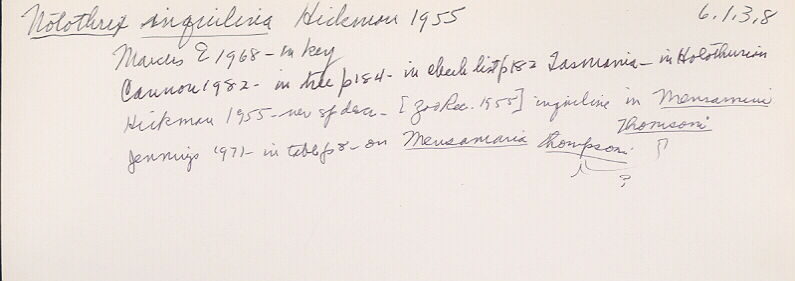 Nolothrix inquilina Hickman 1955 6.1.3.8
Marcus E 1968 - in key
Cannon 1982 - in tree p184 - in check list p182 Tasmania - in Holothurian
Hickman 1955 - new sp desc - [Zoo Rec. 1955] inquiline in Mensamaria
Thomsoni
Jennings 1971 - in table p8 - on Mensamaria thompsoni
?